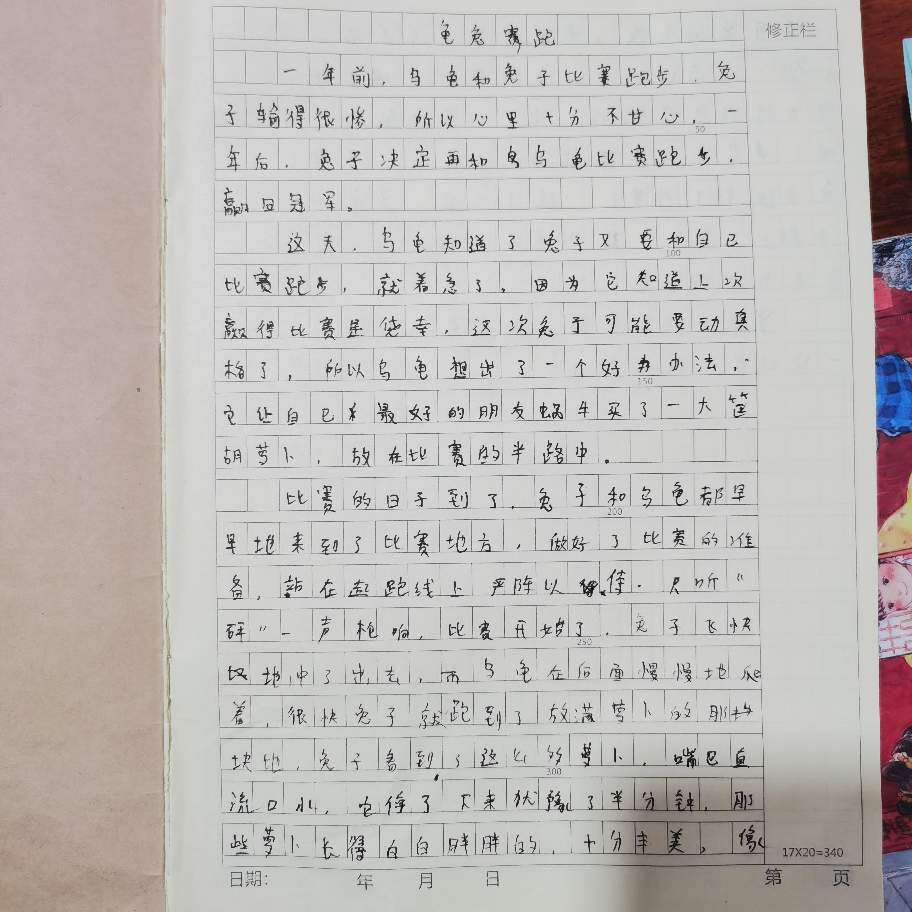 龟兔赛跑
修正栏
一年前,乌龟和兔子比赛跑步,兔
子输得很惨,所以心里十分不甘心,一
50
年后,兔子决定再和乌龟比赛跑步,
赢回冠军。
这天,乌龟知道了兔子又要和自己
100
比赛跑步,就着急了,因为它知道上次
赢得比赛是侥幸,这次兔子可能要动真
格了,所以乌龟想出了一个好办法,
150
它让自己最好的朋友蜗牛买了一大筐
胡萝卜,放在比赛的半路中。
比赛的日子到了,兔子和乌龟都早
200
早地来到了比赛地方,做好了比赛的准
备,站在起跑线上严阵以待.只听“
砰”一声枪响,比赛开始了,兔子飞快
250
地冲了出去,而乌龟在后面慢慢地爬
着,很快兔子就跑到了放满萝卜的那
块地,兔子看到了这么多萝卜,嘴巴直
300
流口水,它停了下来犹豫了半分钟,那
些萝卜长得白白胖胖的,十分丰美,像
17X20=340
日期: 年 月 日 第 页